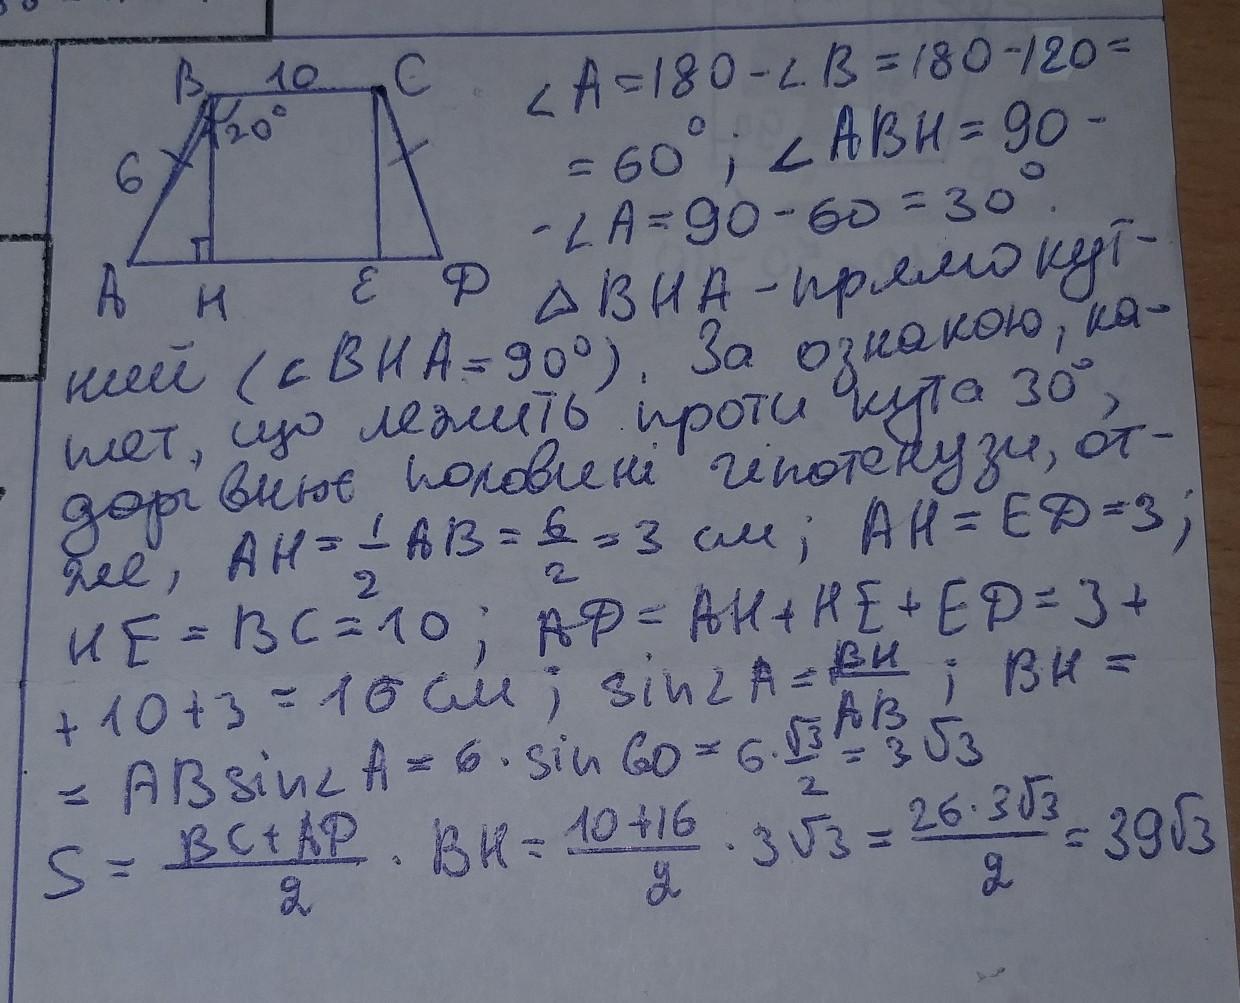 B 10 C
120°
6
A H E D
∠A=180-∠B=180-120=
=60°; ∠ABH=90-
-∠A=90-60=30°.
△BHA-прямокут-
ний (∠BHA=90°). За ознакою, ка-
тет, що лежить проти кута 30°,
дорівнює половині гіпотенузи, от-
же, AH=1/2AB=6/2=3 см; AH=ED=3;
HE=BC=10; AD=AH+HE+ED=3+
+10+3=16 см; sin∠A=BH/AB; BH=
=ABsin∠A=6·sin60=6·√3/2=3√3
S=(BC+AD)/2·BH=(10+16)/2·3√3=(26·3√3)/2=39√3